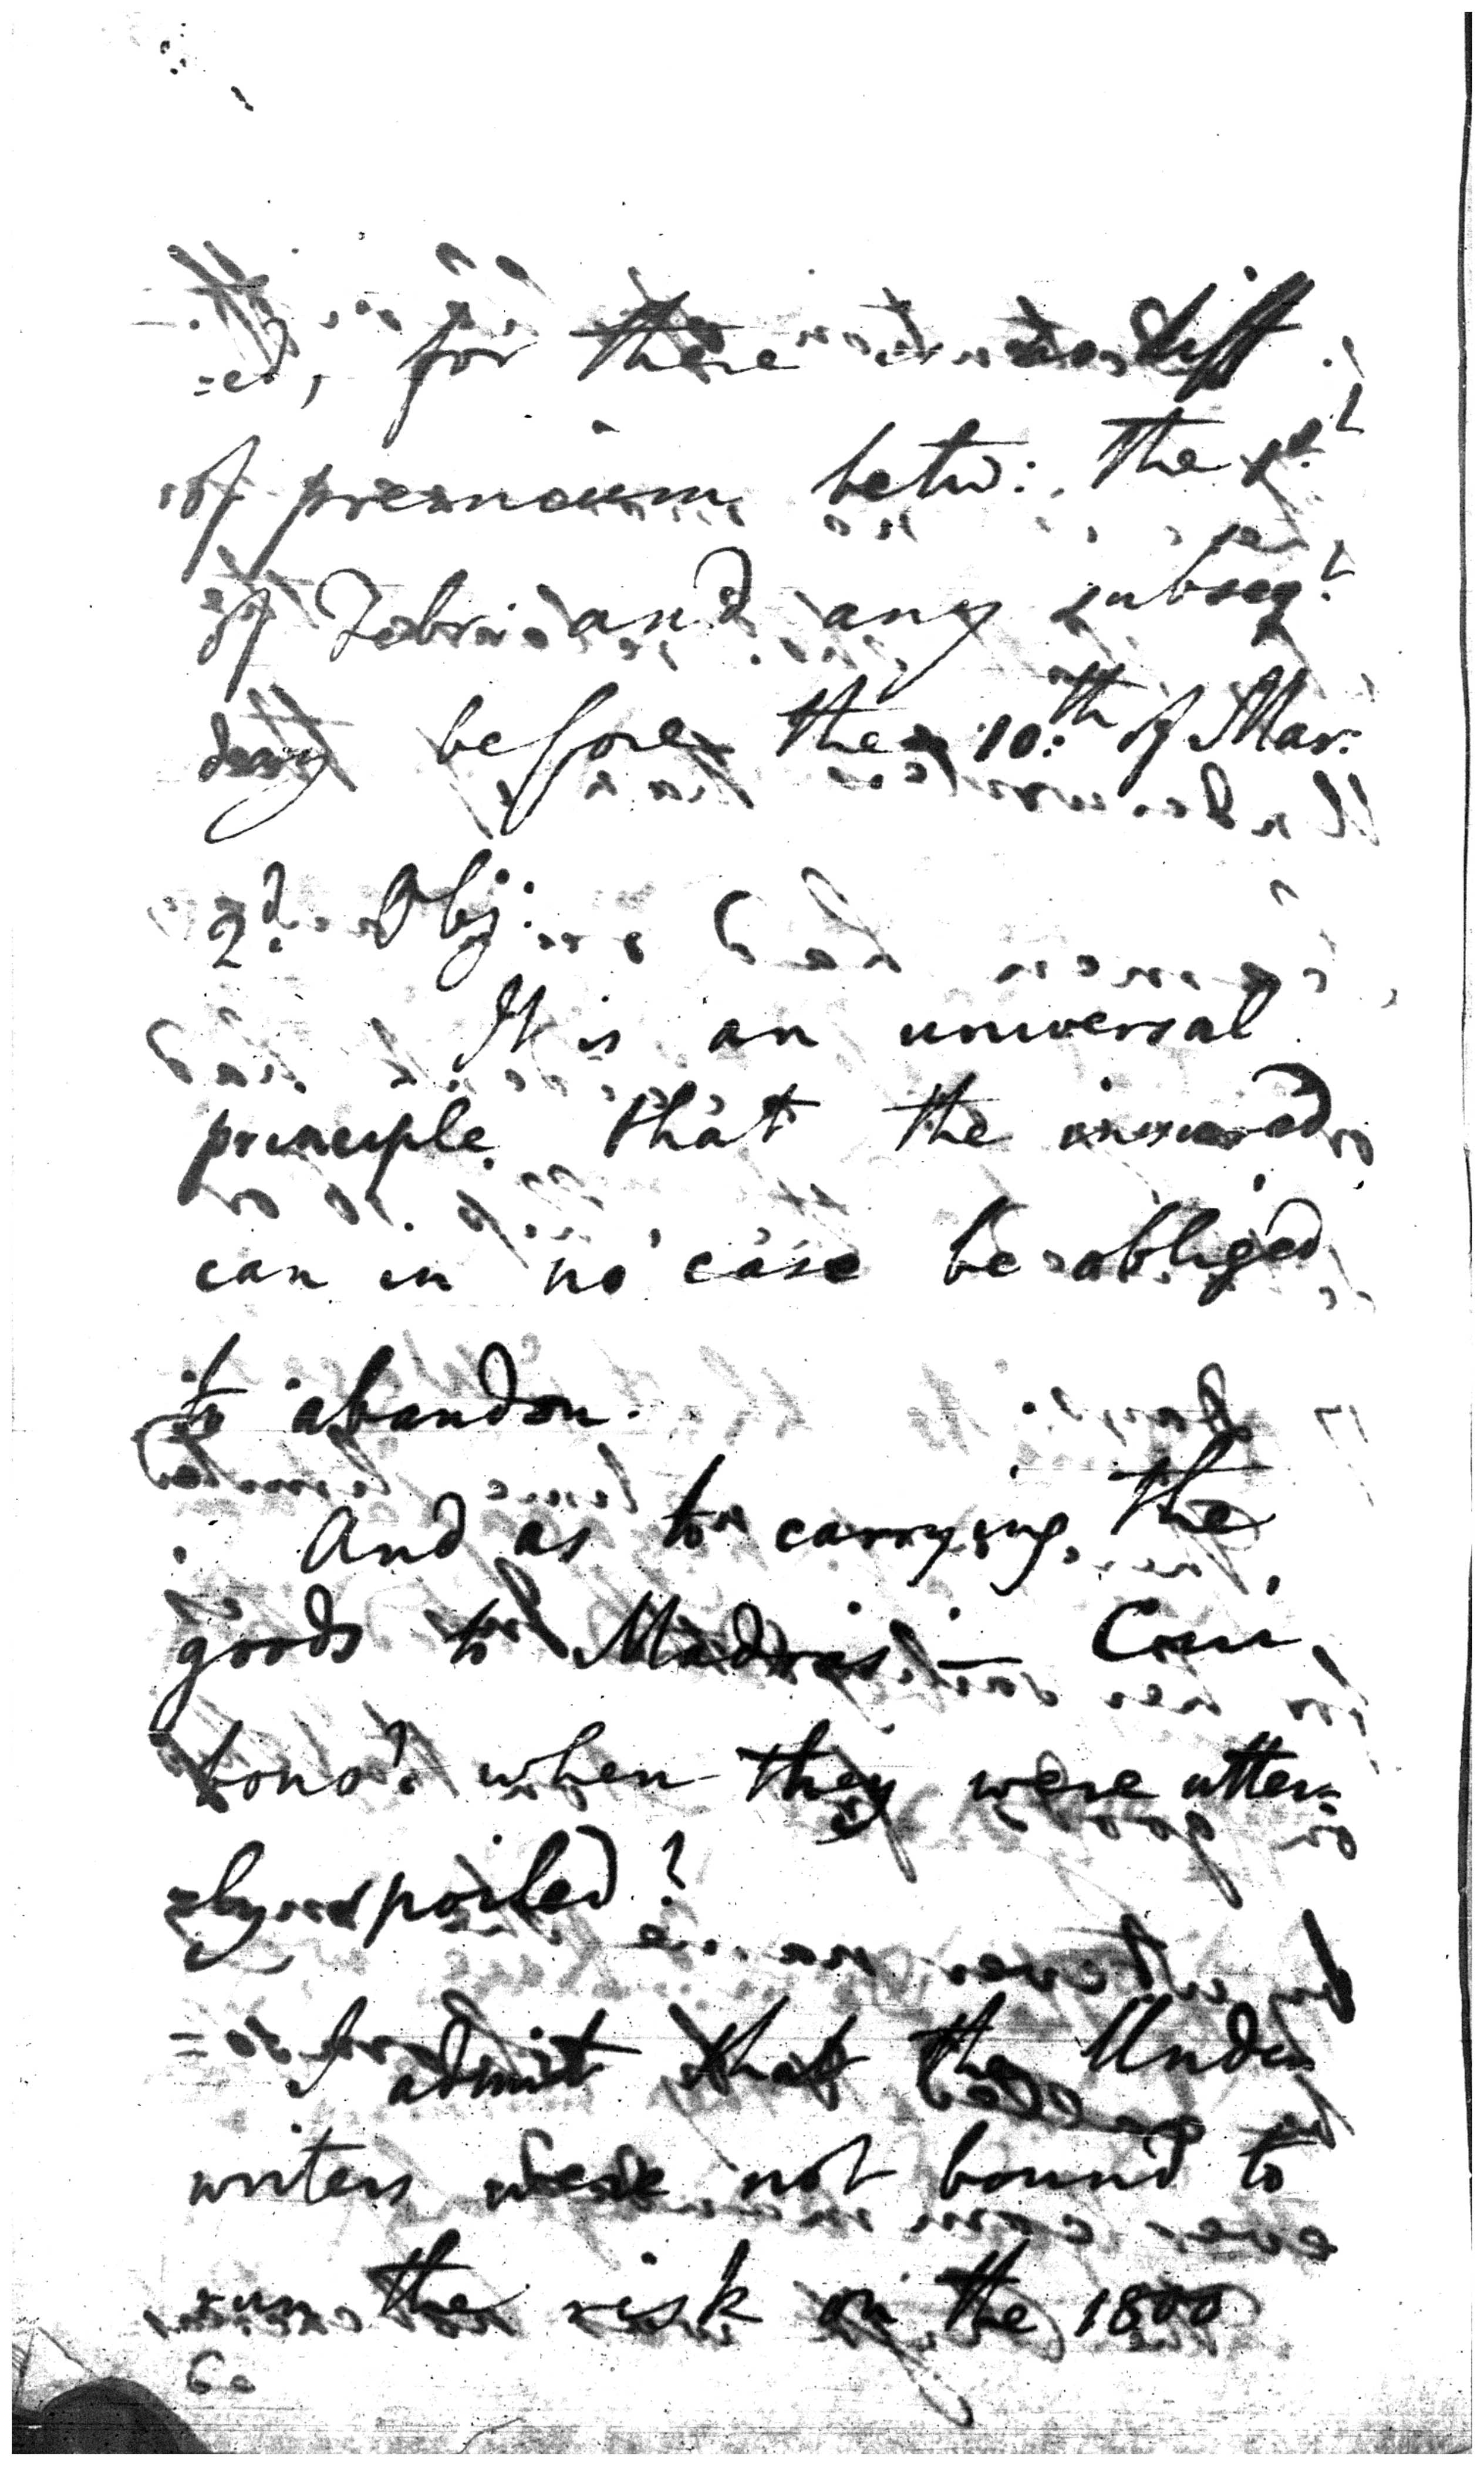 =ed, for there is no diff.
of premium betw: the 1st
of Febr: and any subseqt
day before the 10:th of Mar:
2d. Obj:
It is an universal
principle that the insured
can in no case be obliged
to abandon.
And as to carrying the
goods to Madras — Cui
bono? when they were utter=
=ly spoiled?
I admit that the Under
writers were not bound to
run the risk of the 1800